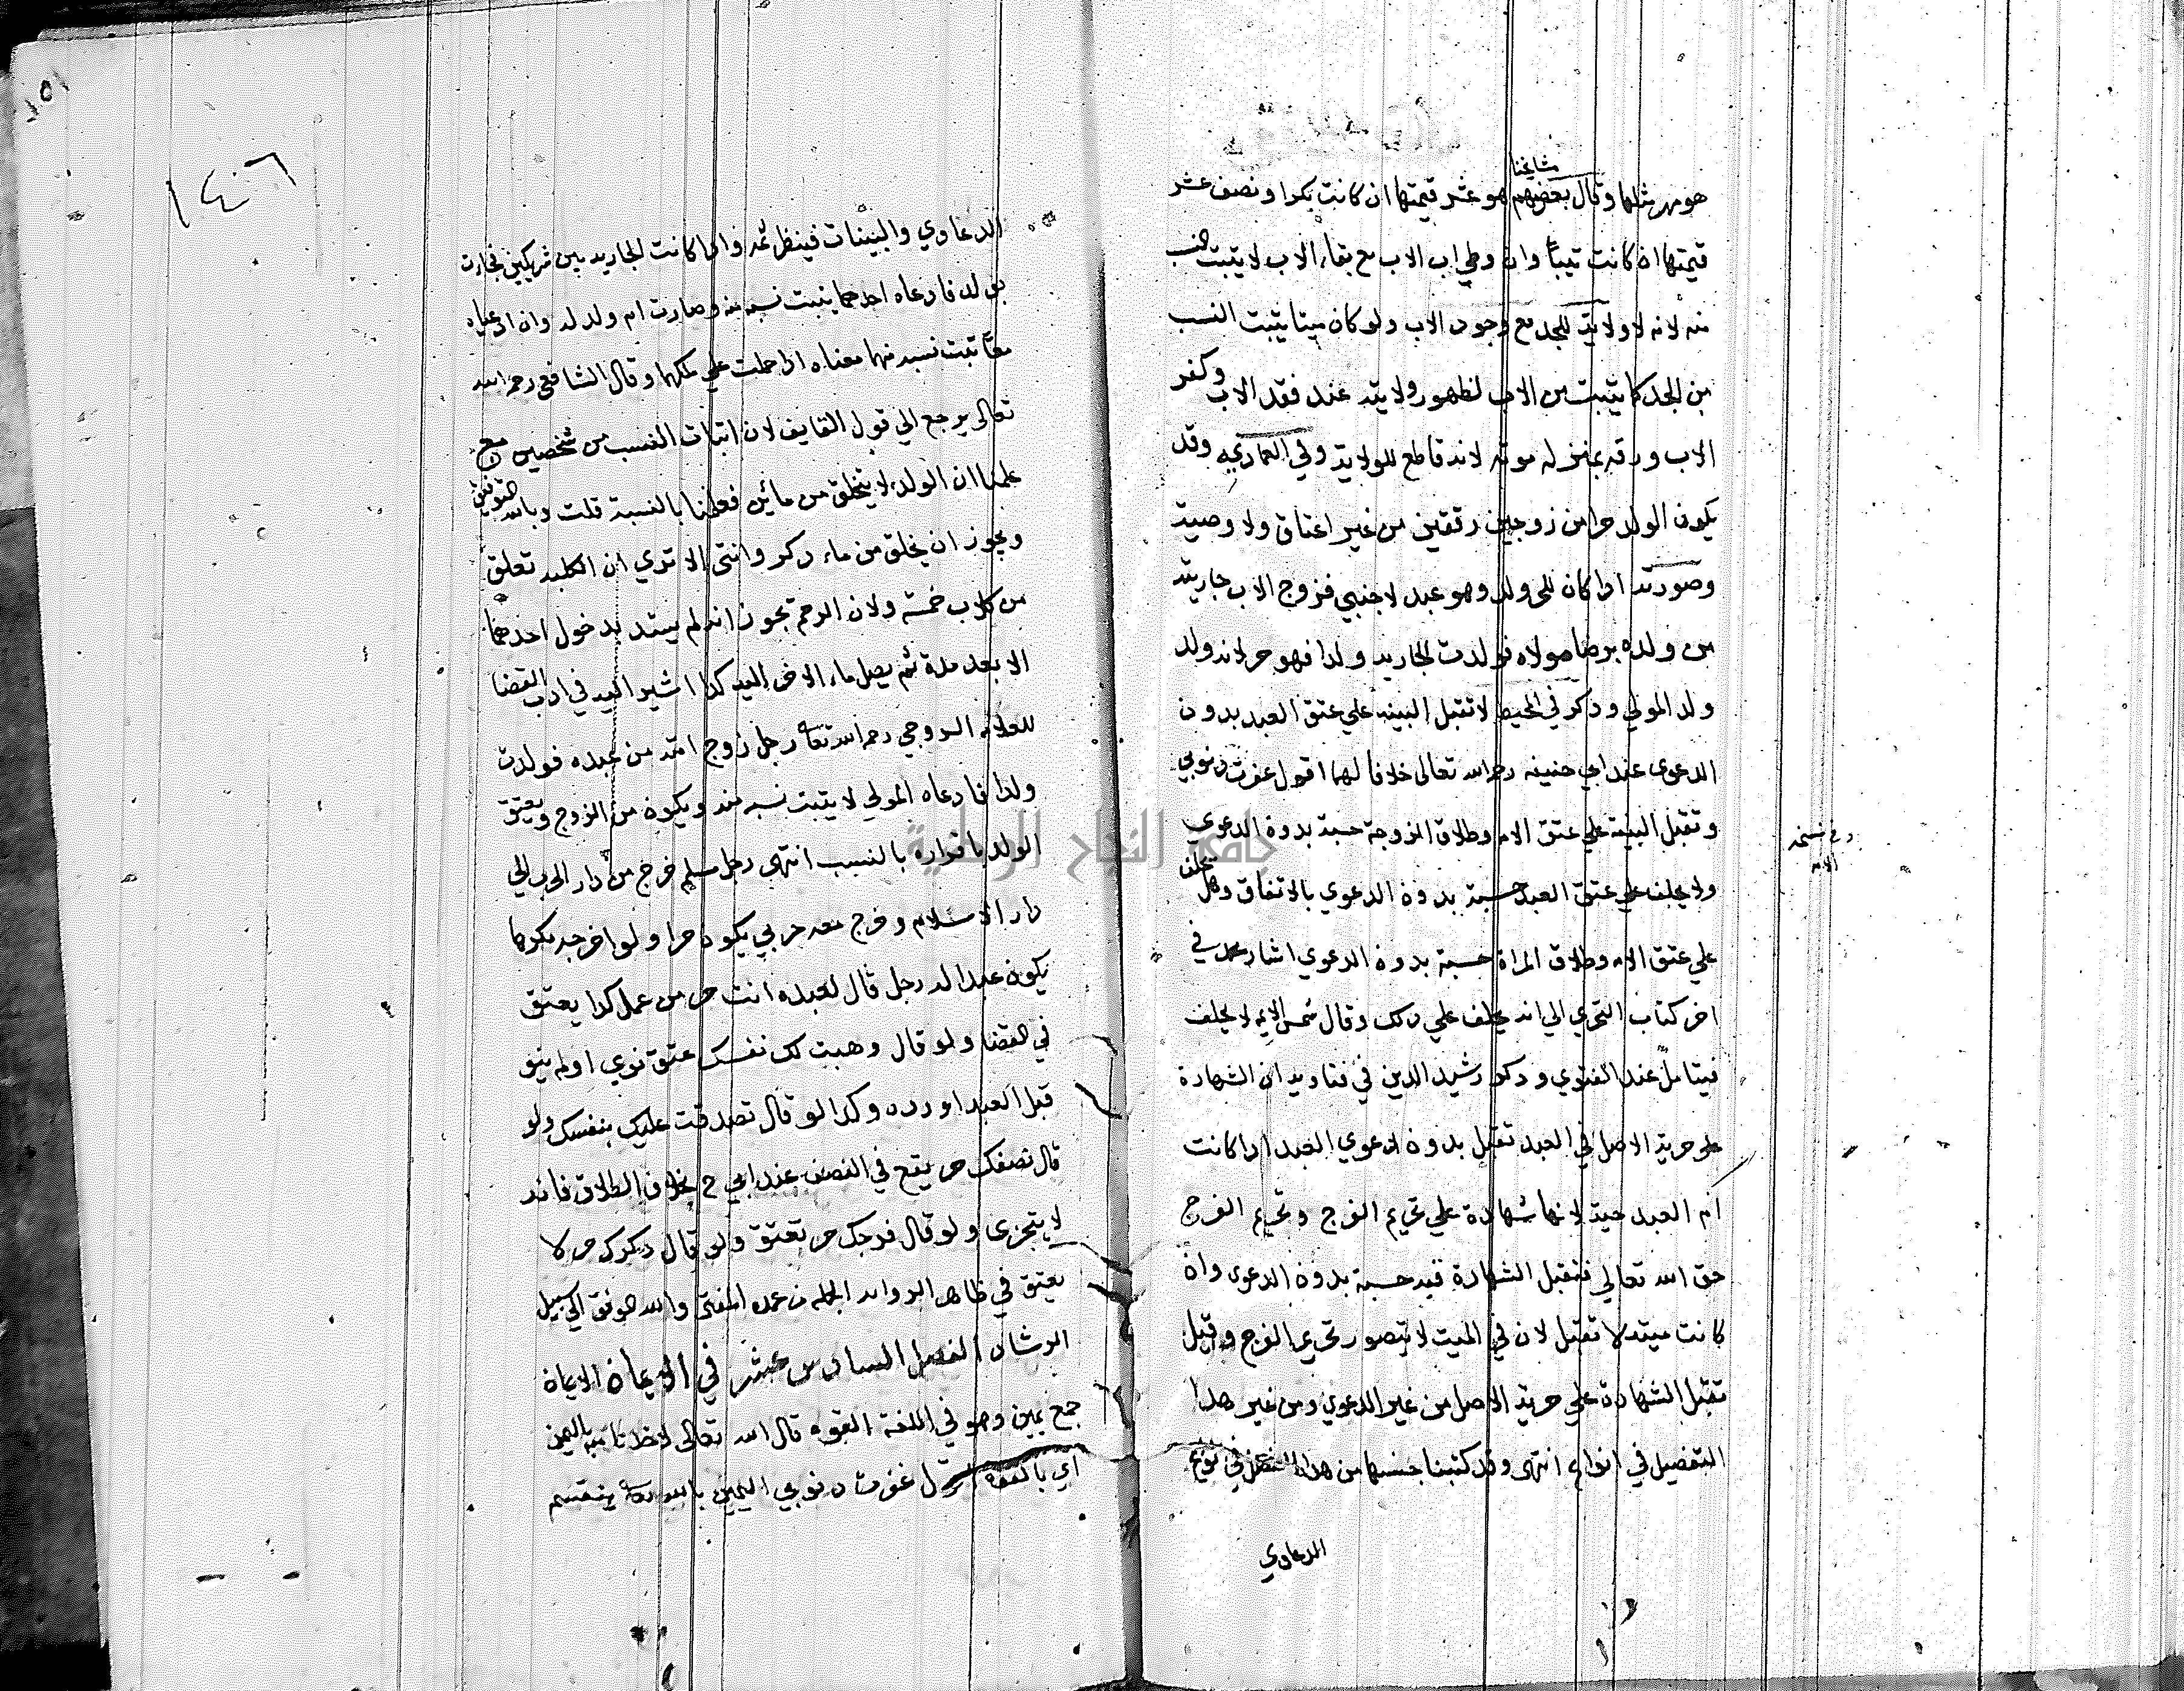 هو مهر مثلها وقال بعضهم مشايخنا هو عشر قيمتها ان كانت بكرا ونصف عشر
قيمتها ان كانت ثيبا وان وطي اب الاب مع بقاء الاب لا يثبت النسب
منه لانه لا ولاية للجد مع وجود الاب ولو كان ميتا يثبت النسب
من الجد كما يثبت من الاب لظهور ولايته عند فقد الاب وكفر
الاب ورقه بمنزلة موته لانه قاطع للولاية وفي العمادي وقد
يكون الولد حرا من زوجين رقيقين من غير اعتاق ولا وصية
وصورته اذا كان للحر ولد وهو عبد لاجنبي فزوج الاب جاريته
من ولده برضا مولاه فولدت الجارية ولدا فهو حر لانه ولد
ولد المولي وذكر في المحيط لا تقبل البينة علي عتق العبد بدون
الدعوى عند ابي حنيفة رحمه الله تعالى خلافا لهما اقول غفرت ذنوبي
وتقبل البينة علي عتق الامة وطلاق الزوجة حسبة بدون الدعوى
ولا يحلف علي عتق العبد حسبة بدون الدعوي بالاتفاق وهل يحلف
علي عتق الامة وطلاق المراة حسبة بدون الدعوي اشار محمد في
اخر كتاب التحري الي انه يحلف علي ذلك وقال شمس الايمة لا يحلف
فيتامل عند الفتوي وذكر رشيد الدين في فتاويه ان الشهادة
علي حرية الاصل في العبد تقبل بدون الدعوي العبد اذا كانت
ام العبد حية لانها شهادة علي تحريم الفرج وتحريم الفرج
حق الله تعالي فتقبل الشهادة فيه حسبة بدون الدعوى وان
كانت ميتة لا تقبل لان في الميت لا يتصور تحريم الفرج وقيل
تقبل الشهادة علي حرية الاصل من غير الدعوي ومن غير هذا
التفصيل في انواع انتهى وقد كتبنا جنسها من هذا الفصل في نوع
الدعاوي
وفي نسخة
الامة
١٥١
١٤٦
الدعاوي والبينات فينظر ثمه واذا كانت الجارية بين شريكين فجاءت
بولد فادعاه احدهما يثبت نسبه منه وصارت ام ولد له وان ادعياه
معا ثبت نسبه منهما معناه اذا حملت علي ملكهما وقال الشافعي رحمه الله
تعالى يرجع الي قول القايف لان اثبات النسب من شخصين مع
علمنا ان الولد لا يتخلق من مائين فعلمنا بالنسبة قلت وبالله التوفيق
ويجوز ان يخلق من ماء ذكر وانثى الا تري ان الكلبة تعلق
من كلاب خمسة ولان الرحم يجوز انه لم يستد بدخول احدهما
الا بعد مدة ثم يصل ماء الاخر اليه كذا اشير اليه في ادب القضا
للعلامة السروجي رحمه الله تعالى رجل زوج امته من عبده فولدت
ولدا فادعاه المولي لا يثبت نسبه منه ويكون من الزوج ويعتق
الولد باقراره بالنسب انتهى رجل مسلم خرج من دار الحرب الي
دار الاسلام وخرج معه حربي يكون حرا ولو اخرجه مكرها
يكون عبدا له رجل قال لعبده انت حر من عمل كذا يعتق
في القضا ولو قال وهبت لك نفسك عتق نوي او لم ينو
قبل العبد او رده وكذا لو قال تصدقت عليك بنفسك ولو
قال نصفك حر يقع في النصف عند ابي ح بخلاف الطلاق فانه
لا يتجزى ولو قال فرجك حر تعتق ولو قال ذكرك حر لا
يعتق في ظاهر الرواية الجملة من عمدة المفتي والله الموفق الي سبيل
الرشاد الفصل السادس عشر في الايمان الايمان
جمع يمين وهو في اللغة القوة قال الله تعالى لاخذنا منه باليمين
اي بالقوة اقول غفرت ذنوبي اليمين بالله تعالى ينقسم
جامعة النجاح الوطنية